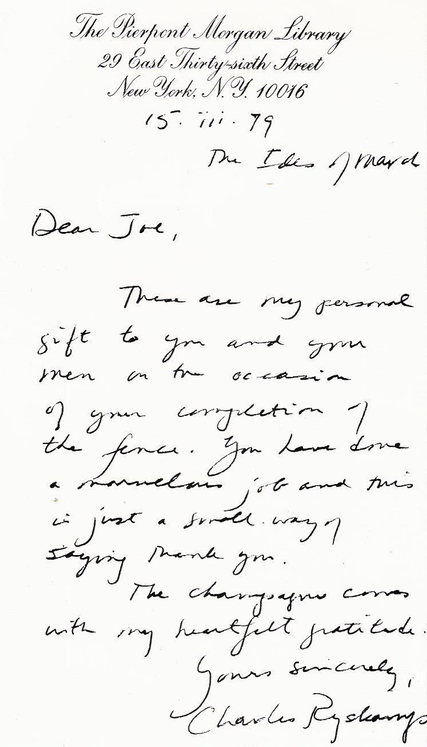 The Pierpont Morgan Library
29 East Thirty-sixth Street
New York, N.Y. 10016
15. iii. 79
The Ides of March
Dear Joe,
These are my personal
gift to you and your
men on the occasion
of your completion of
the fence. You have done
a marvellous job and this
is just a small way of
saying thank you.
The champagne comes
with my heartfelt gratitude.
Yours sincerely,
Charles Ryskamp